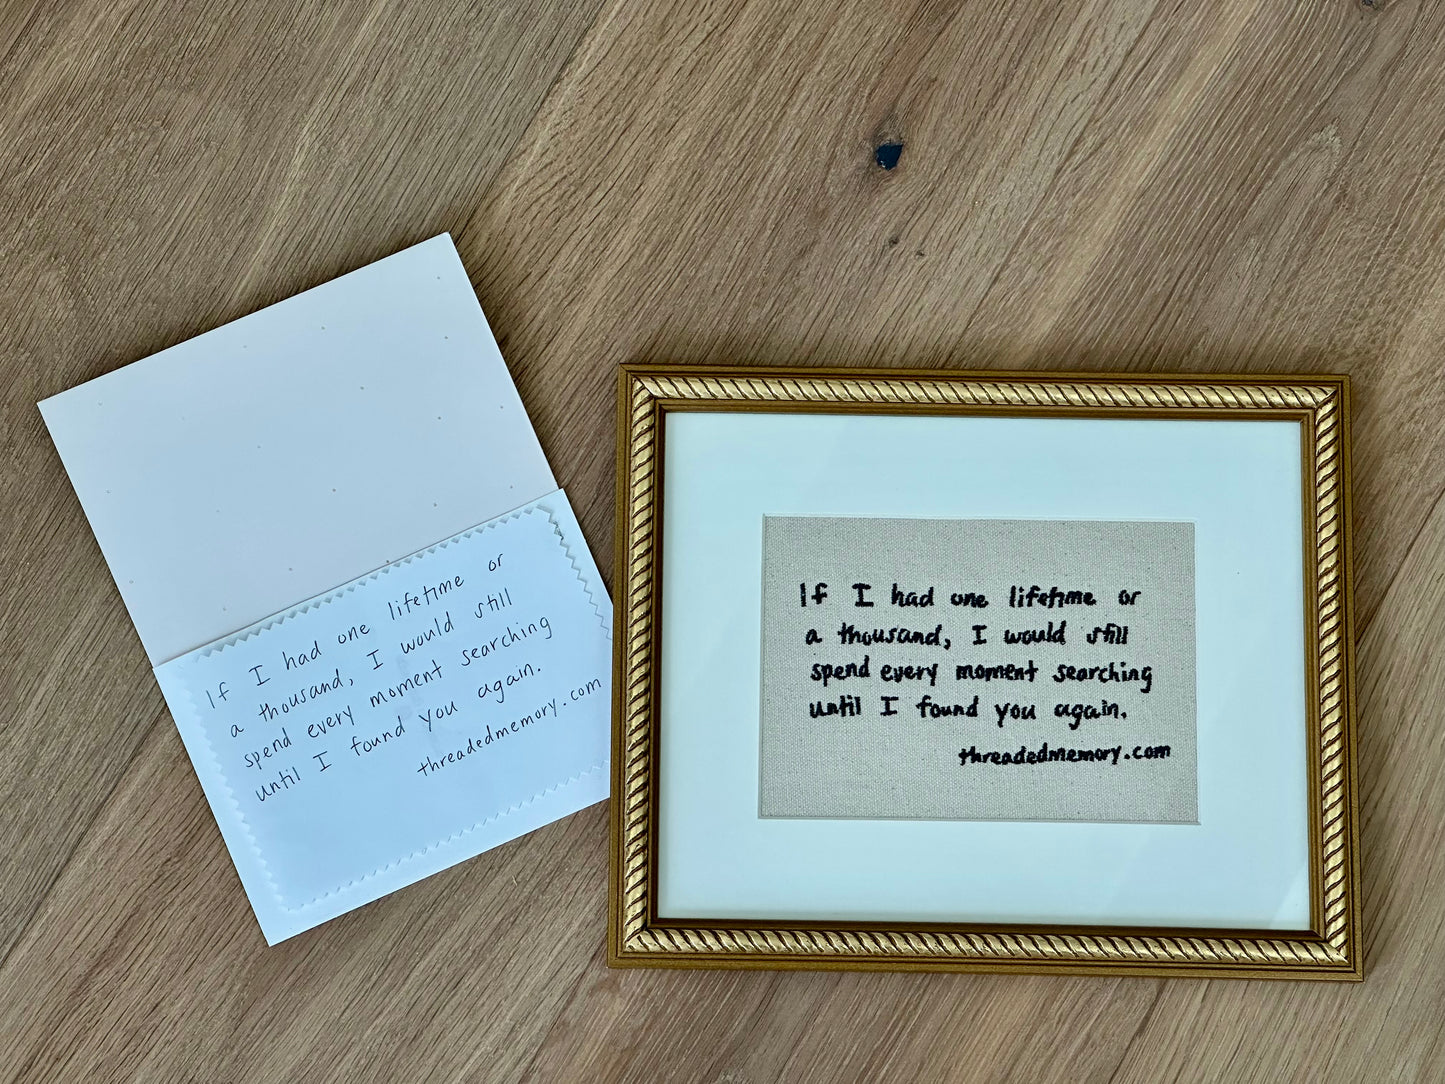 If I had one lifetime or
a thousand, I would still
spend every moment searching
until I found you again.
threadedmemory.com
If I had one lifetime or
a thousand, I would still
spend every moment searching
until I found you again.
threadedmemory.com